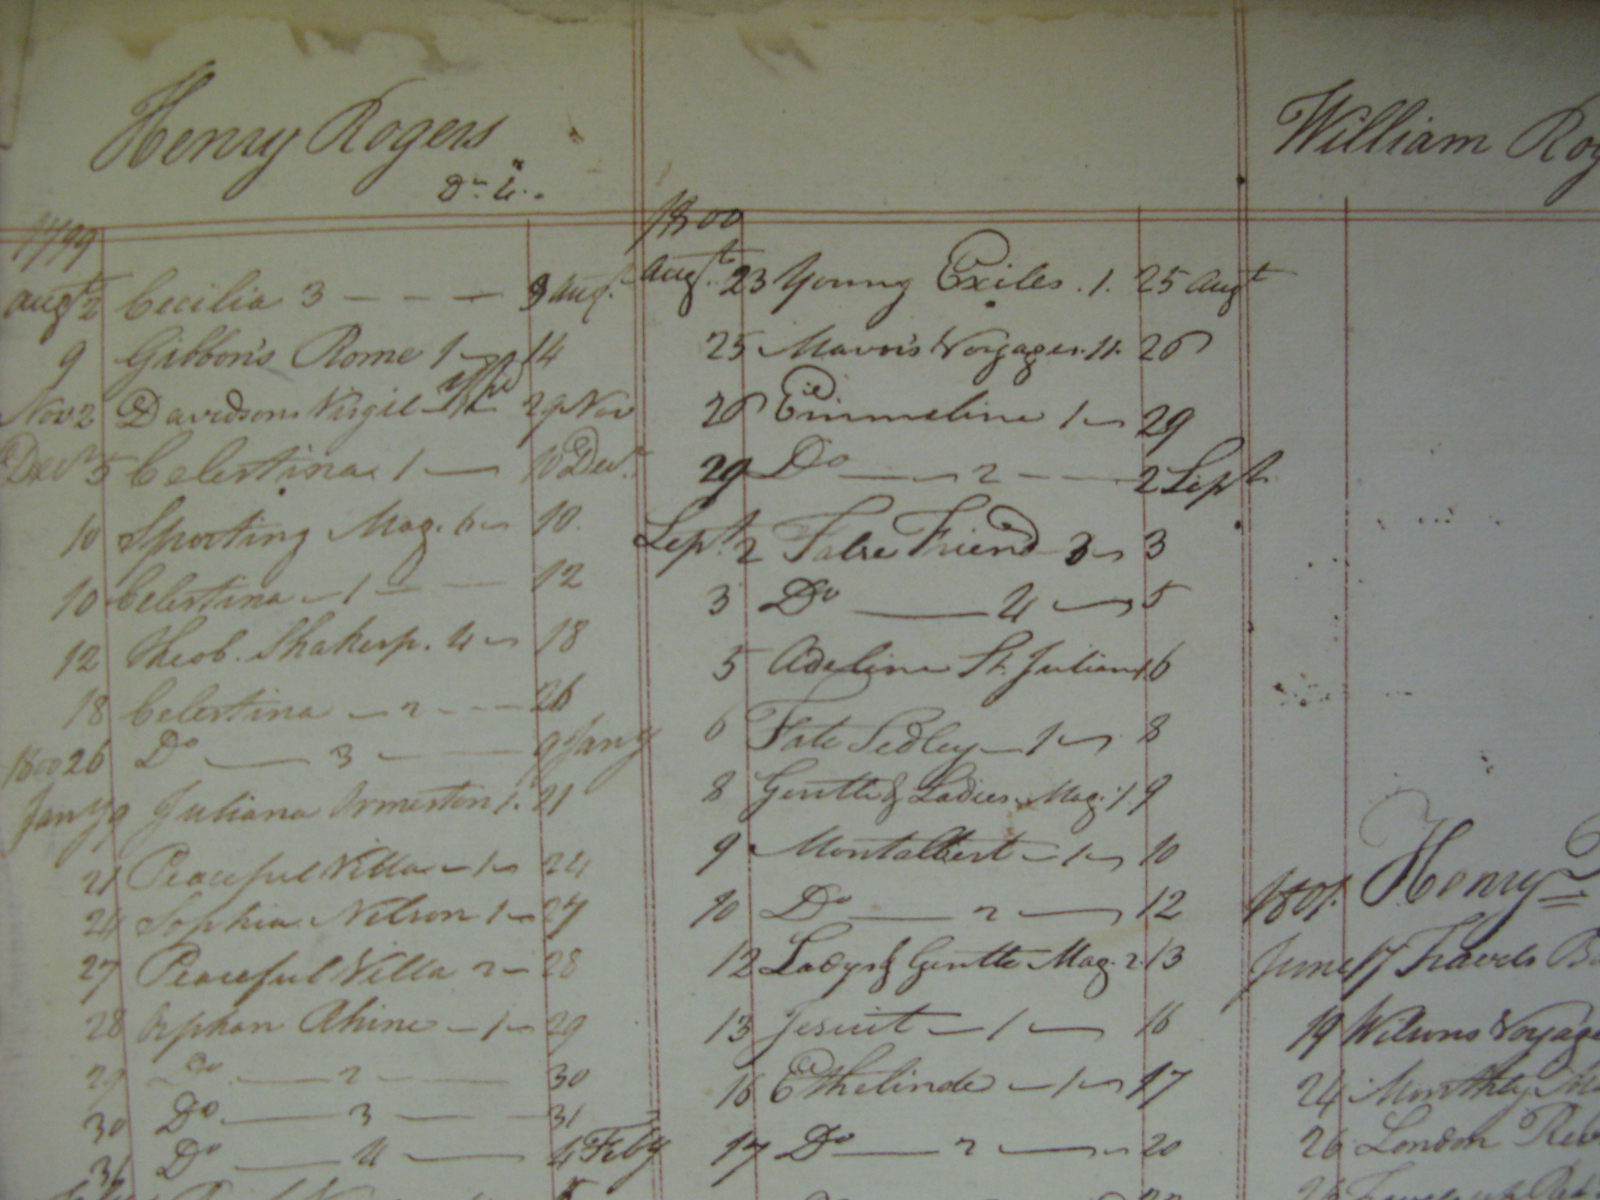 Henry Rogers
1799
Augt 2 Cecilia 3 - - - 9 Aug.
9 Gibbon's Rome 1 - 14
Nov 2 Davidsons Virgil 29 Nov
Decr 5 Celestina 1 — 10 Decr.
10 Sporting Mag. 6 - 10.
10 Celestina - 1 - - 12
12 Theob. Shakesp. 4 - 18
18 Celestina - 2 - - - 26
1800 26 Do — 3 - — 9 Jany
Jany 9 Juliana Ormeston 1. 21
21 Peaceful Villa - 1 - 24
24 Sophia Nelson 1 - 27
27 Peaceful Villa 2 - 28
28 Orphan Rhine - 1 - 29
29 Do — 2 - — 30
30 Do — 3 — - 31
31 Do — 4 — 4 Feby
1800
Augt. 23 Young Exiles. 1. 25 Augt
25 Mavor's Voyages. 11. 26
26 Emmeline 1 - 29
29 Do — 2 - - - 2 Sept
Sept 2 False Friend 3 - 3
3 Do — 4 — 5
5 Adeline St. Julian 1 6
6 Fate Sedley - 1 - 8
8 Gentle & Ladies Mag. 1. 9
9 Montalbert - 1 - 10
10 Do — 2 — 12
12 Ladys & Gentle Mag. 2. 13
13 Jesuit - 1 — 16
16 Ethelinde - 1 - 17
17 Do — 2 — 20
William
1801.
Henry
June 17 Travels
19 Wilsons Voyage
24 Monthly
26 London